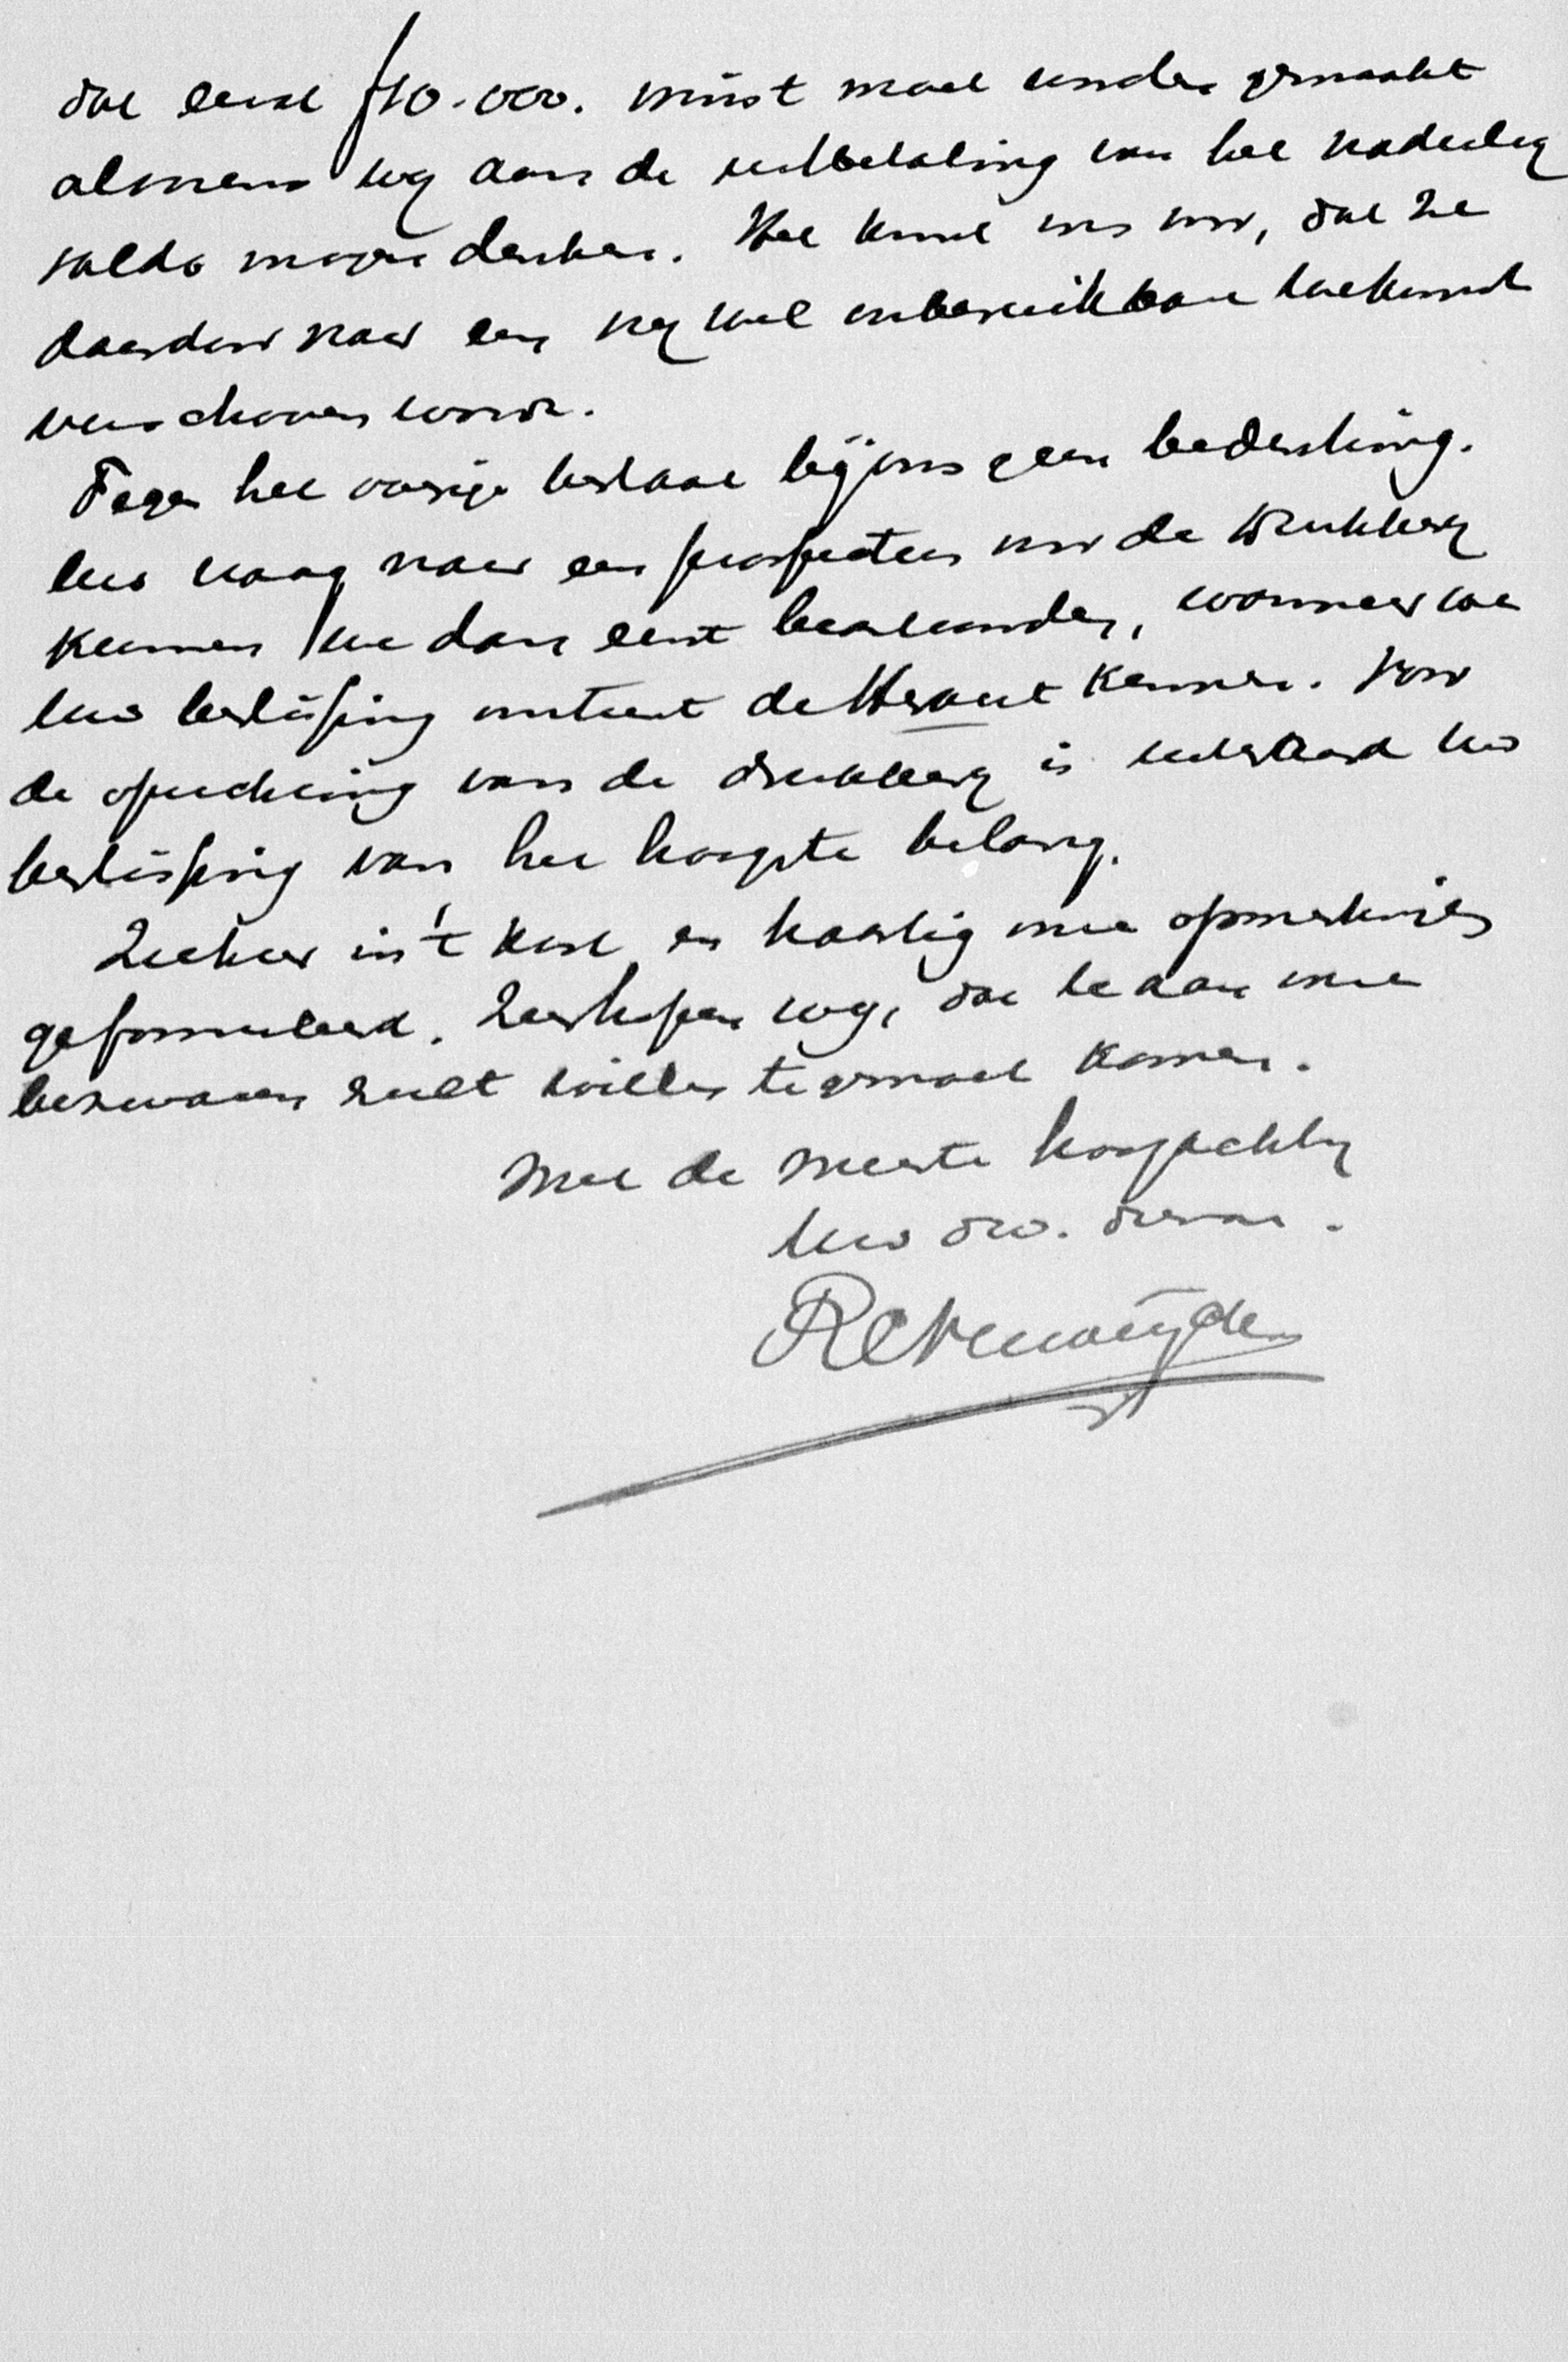 dat eerst f10.000. winst moet worden gemaakt
alvorens wij aan de uitbetaling van het nadeelig
saldo mogen denken. Het komt ons voor, dat ze
daardoor naar een vrij wel onbereikbare toekomst
verschoven wordt.
Tegen het overige bestaat bij ons geen bedenking.
Uw vraag naar een prospectus voor de drukkerij
kunnen we dan eerst beantwoorden, wanneer we
uw beslissing omtrent de Heraut kennen. Voor
de oprichting van de drukkerij is uiteraard uw
beslissing van het hoogste belang.
Ziehier in 't kort en haastig onze opmerkingen
geformuleerd. Zeer hopen wij, dat U aan onze
bezwaren zult willen tegemoet komen.
Met de meeste hoogachting
Uw dw. dienaar.